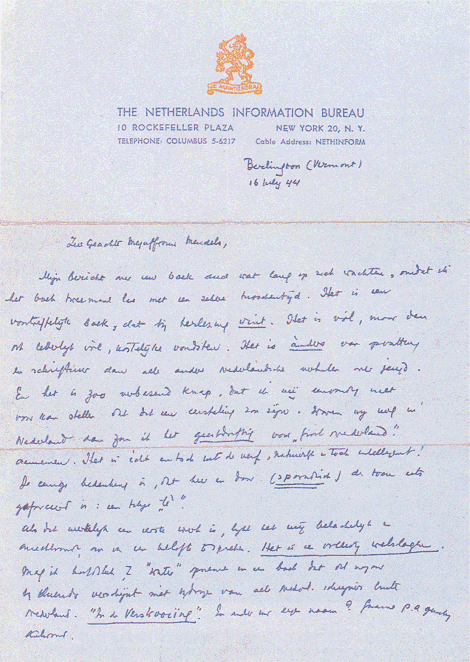 JE MAINTIENDRAI
THE NETHERLANDS INFORMATION BUREAU
10 ROCKEFELLER PLAZA NEW YORK 20, N. Y.
TELEPHONE: COLUMBUS 5-6317 Cable Address: NETHINFORM
Burlington (Vermont)
16 July 44
Zeer Geachte Mejuffrouw Mendels,
Mijn bericht over uw boek deed wat lang op zich wachten, omdat ik
het boek tweemaal las met een zekere tusschentijd. Het is een
voortreffelijk boek, dat bij herlezing wint. Het is vól, maar dan
ook letterlijk vól, kostelijke vondsten. Het is ànders van opvatting
en schriftuur dan alle andere Nederlandsche verhalen over jeugd.
En het is zoo verbazend knap, dat ik mij eenvoudig niet
voor kan stellen dat dit een eersteling zou zijn. Waren wij nog in
Nederland dan zou ik het geestdriftig voor "Groot Nederland"
aannemen. Het is echt en toch uit de verf, natuurlijk en toch intelligent!
De eenige bedenking is, dat hier en daar (sporadisch) de toon iets
geforceerd is: een tikje "té".
Als dit werkelijk een eerste werk is, lijkt het mij belachelijk
om van een belofte te spreken. Het is een volledig welslagen.
Mag ik hoofdstuk I "Water" opnemen in een boek dat
bij Querido verschijnt met bijdragen van alle Nederl. schrijvers buiten
Nederland. "In de Verstrooiing". En onder uw eigen naam?